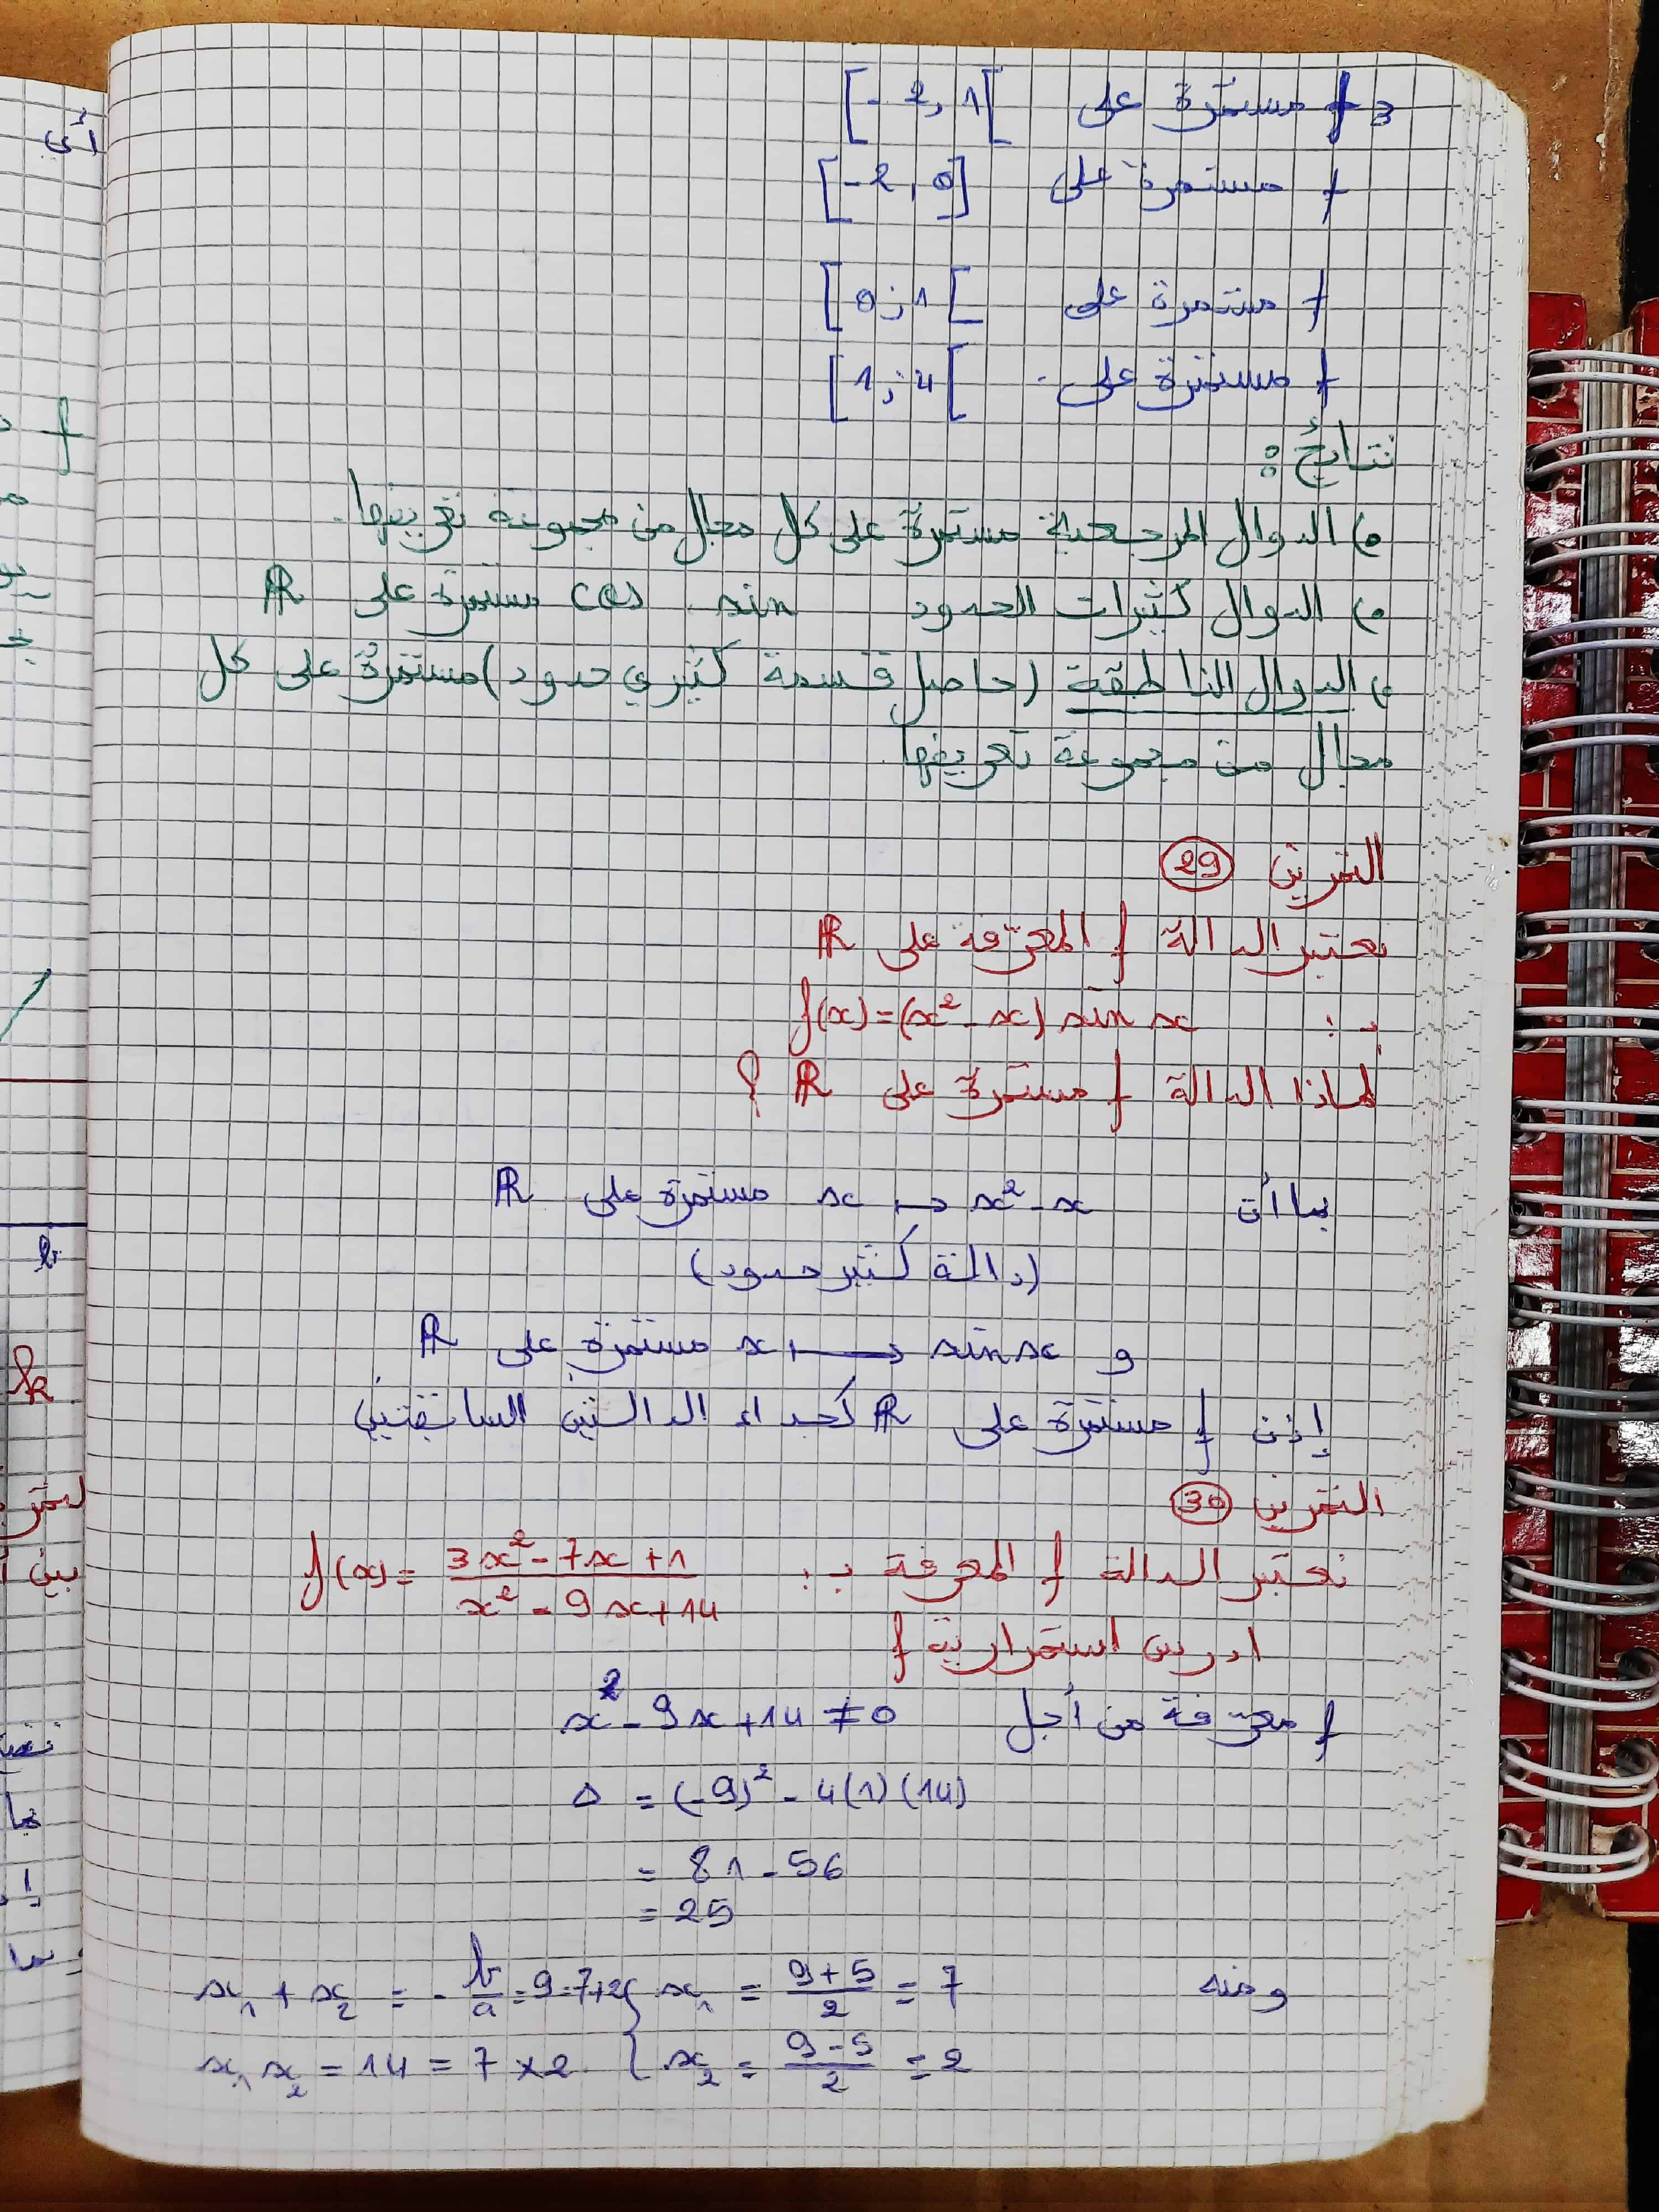 3- f مستمرة على [-2, 1[
f مستمرة على [-2, 0]
f مستمرة على [0; 1[
f مستمرة على [1; 4[
نتائج :
o) الدوال المرجعية مستمرة على كل مجال من مجموعة تعريفها.
o) الدوال كثيرات الحدود sin cos مستمرة على ℝ
o) الدوال الناطقة (حاصل قسمة كثيري حدود) مستمرة على كل
مجال من مجموعة تعريفها.
التمرين 29
نعتبر الدالة f المعرّفة على ℝ
بـ : f(x) = (x² - x) sin x
لماذا الدالة f مستمرة على ℝ ؟
بما أن x ↦ x² - x مستمرة على ℝ
(دالة كثير حدود)
و x ⟼ sin x مستمرة على ℝ
إذن f مستمرة على ℝ كجداء الدالتين السابقتين
التمرين 30
نعتبر الدالة f المعرفة بـ : f(x) = (3x² - 7x + 1)/(x² - 9x + 14)
ادرس استمرارية f
f معرّفة من أجل x² - 9x + 14 ≠ 0
Δ = (-9)² - 4(1)(14)
= 81 - 56
= 25
ومنه x₁ = (9+5)/2 = 7 } x₁ + x₂ = -b/a = 9 = 7+2
x₂ = (9-5)/2 = 2 { x₁ x₂ = 14 = 7 × 2